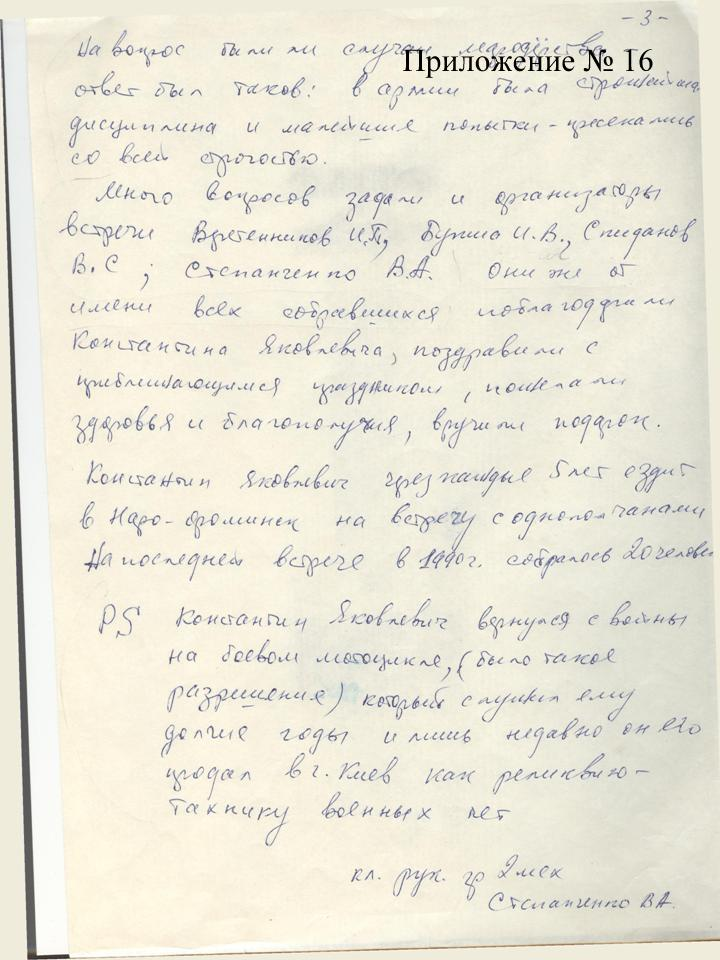 - 3 -
На вопрос были ли случаи мародёрства
Приложение № 16
ответ был таков: в армии была строжайшая
дисциплина и малейшие попытки - пресекались
со всей строгостью.
Много вопросов задали и организаторы
встречи И.П., И.В., Спиданов
В.С; Степанченко В.А. Они же от
имени всех собравшихся поблагодарили
Константина Яковлевича, поздравили с
приближающимся праздником, пожелали
здоровья и благополучия, вручили подарок.
Константин Яковлевич через каждые 5 лет ездит
в Наро-Фоминск на встречу с однополчанами
На последней встрече в 1990г. собралось 20 человек
PS Константин Яковлевич вернулся с войны
на боевом мотоцикле, (было такое
разрешение) который служил ему
долгие годы и лишь недавно он его
продал в г. Киев как реликвию -
технику военных лет
кл. рук. гр 2 мех
Степанченко В.А.